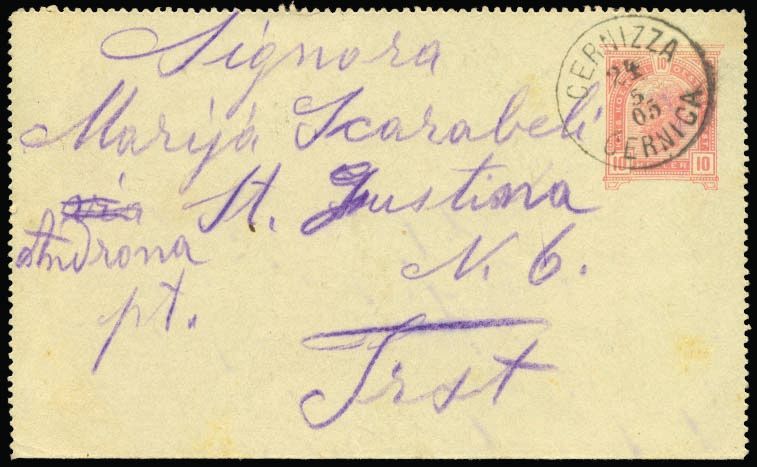 Signora
Marijá Scarabeli
via St. Justina
Androna N. 6.
pt.
Trst
CERNIZZA
24
5
05
CERNICA
10
10 10